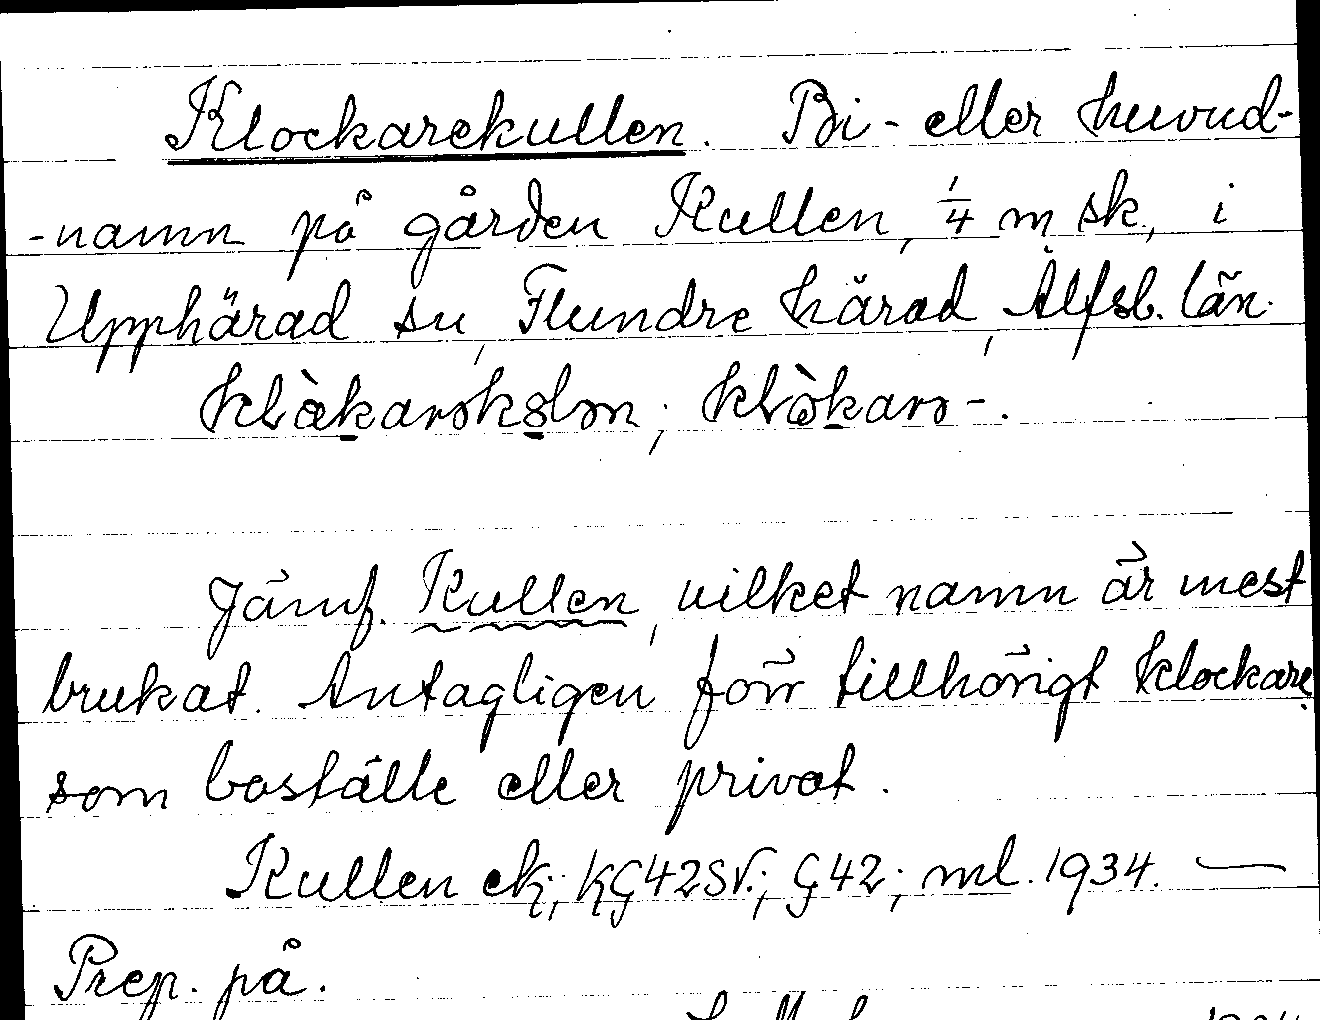 Klockarekullen. Bi- eller huvud-
-namn på gården Kullen, 1/4 m, sk., i
Upphärad sn, Flundre härad, Älfsb. län.
Jämf. Kullen, vilket namn är mest
brukat. Antagligen förr tillhörigt klockare,
som boställe eller privat.
Kullen ek; KG42SV.; G42; ml. 1934. —
Prep. på.